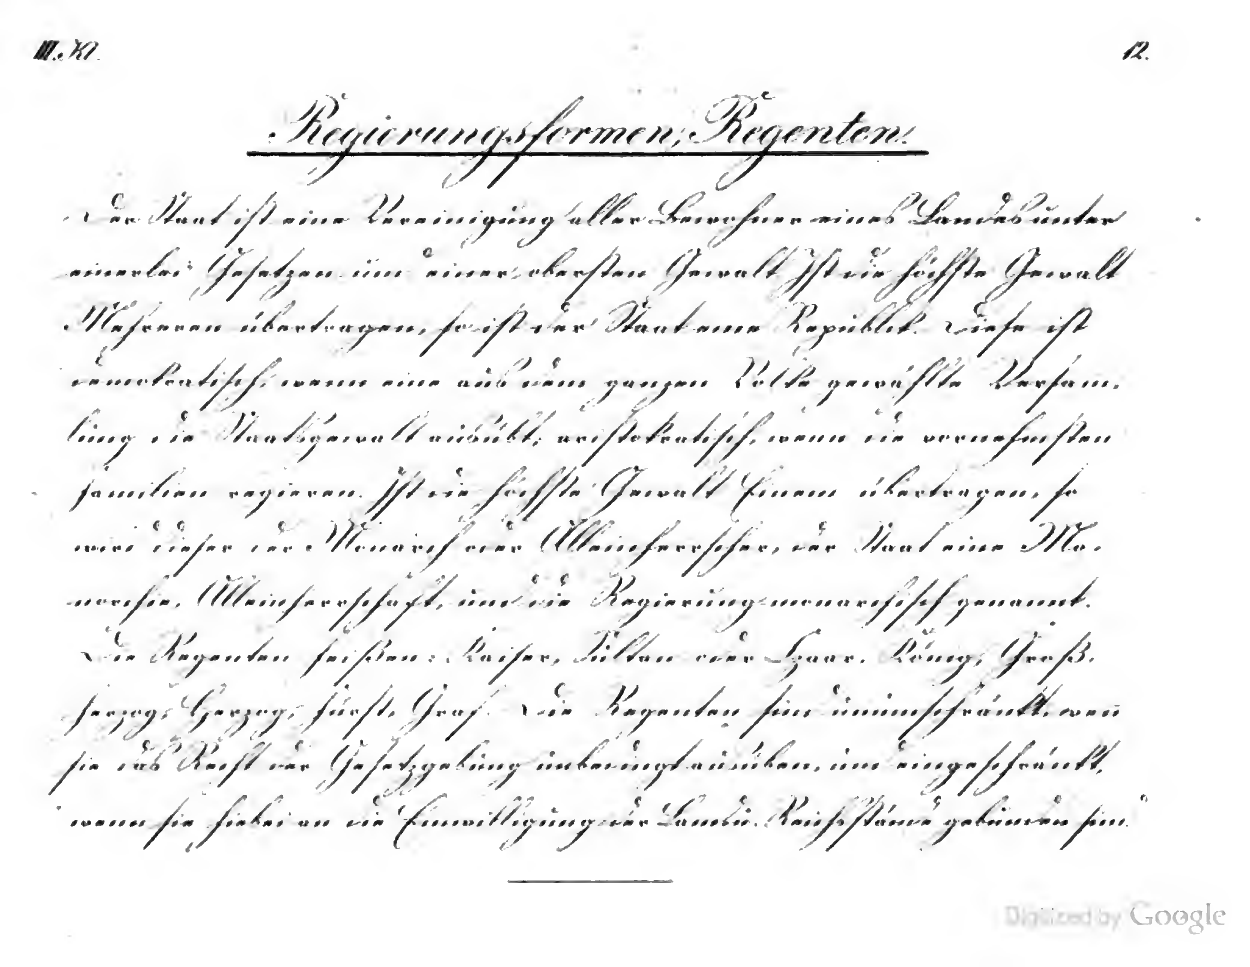 III. Kl.
12.
Regierungsformen, Regenten.
Der Staat ist eine Vereinigung aller Bewohner eines Landes unter
einerlei Gesetzen und einer obersten Gewalt. Ist die höchste Gewalt
Mehreren übertragen, so ist der Staat eine Republik. Diese ist
demokratisch, wenn eine aus dem ganzen Volke gewählte Versam-
lung die Staatsgewalt ausübt; aristokratisch, wenn die vornehmsten
Familien regieren. Ist die höchste Gewalt Einem übertragen, so
wird dieser der Monarch oder Alleinherrscher, der Staat eine Mo-
narchie, Alleinherrschaft, und die Regierung monarchisch genannt.
Die Regenten heißen: Kaiser, Sultan oder Czaar, König, Groß-
herzog, Herzog, Fürst, Graf. Die Regenten sind uneinschränkt, wen̄
sie das Recht der Gesetzgebung unbedingt ausüben, und eingeschränkt,
wenn sie hiebei an die Einwilligung der Land- u. Reichsstände gebunden sind.
Digitized by Google